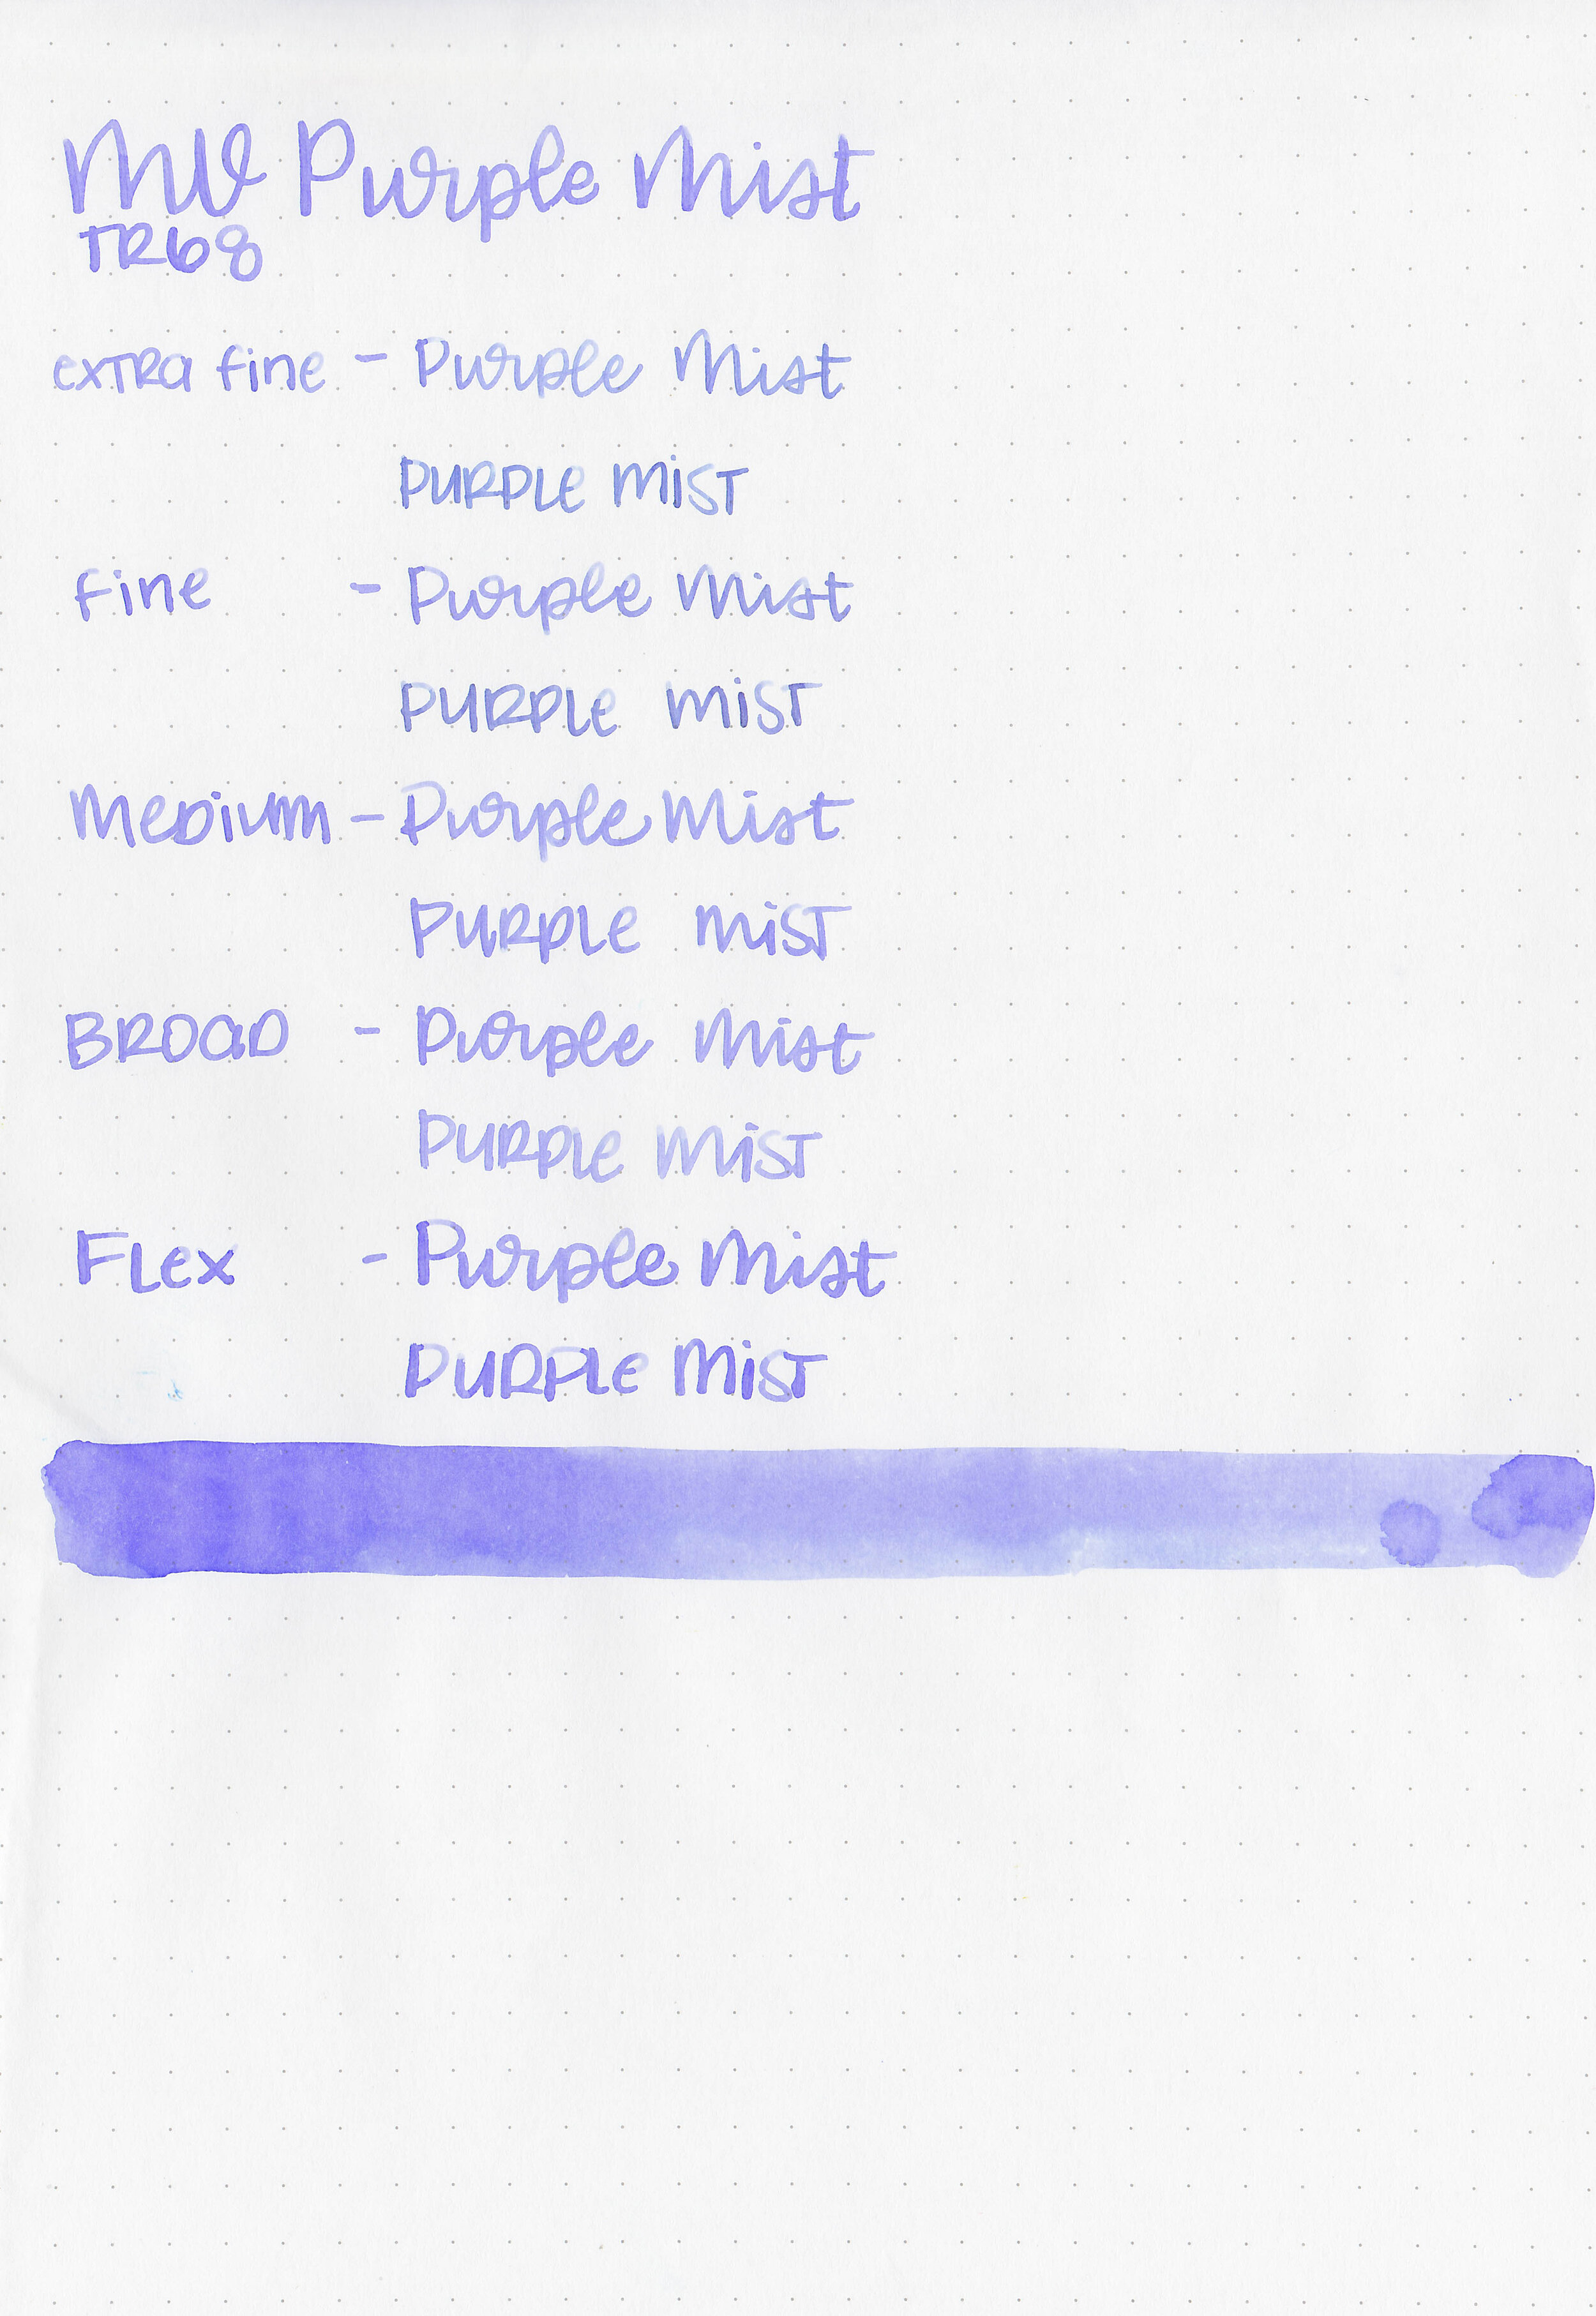 MV Purple Mist
TR68
exTRa fine - Purple Mist
PURPLe MiST
fine - Purple Mist
PURPLe MiST
MeDiuM - Purple Mist
PURPLe MiST
BROaD - Purple Mist
PURPLe MiST
FLex - Purple Mist
PURPLe MiST